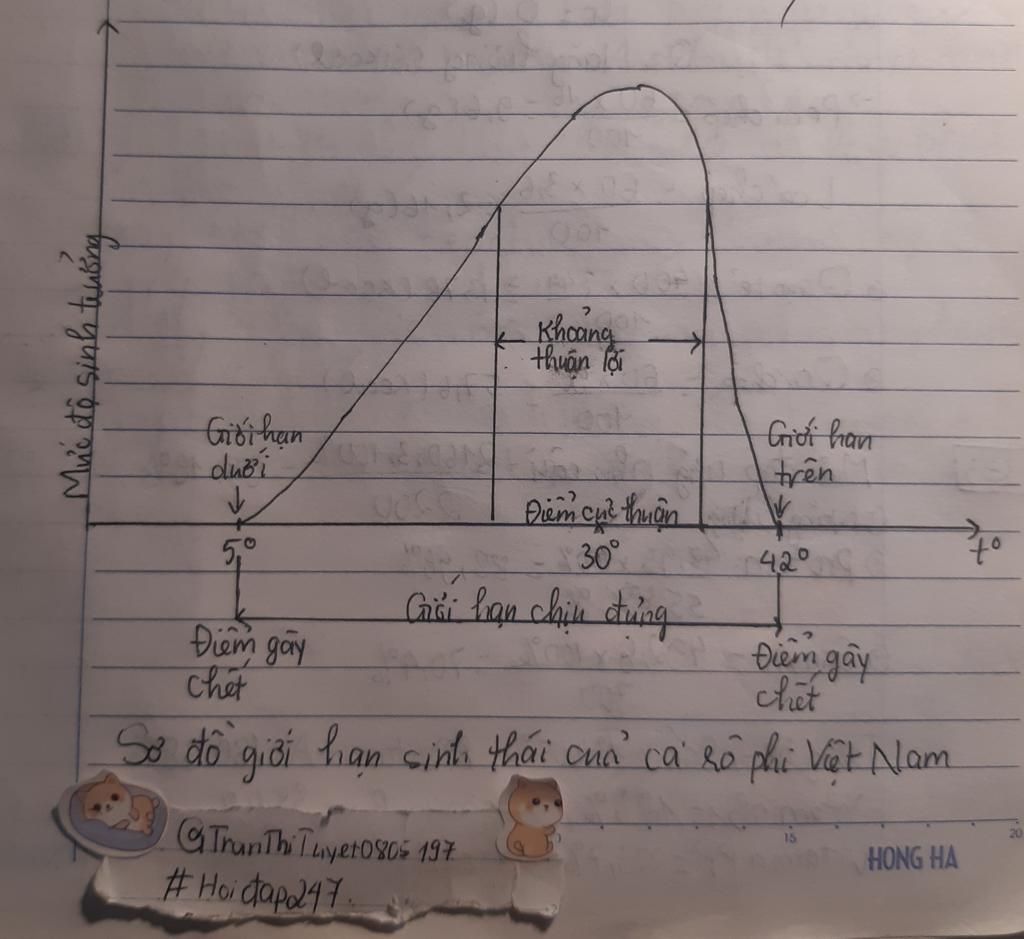 Mức độ sinh trưởng
Khoảng
thuận lợi
Giới hạn
dưới
Giới hạn
trên
Điểm cực thuận
5°
30°
42°
t°
Giới hạn chịu đựng
Điểm gây
chết
Điểm gây
chết
Sơ đồ giới hạn sinh thái của cá rô phi Việt Nam
@TranThiTuyet0805197
#Hoidap247.
15
20
HONG HA